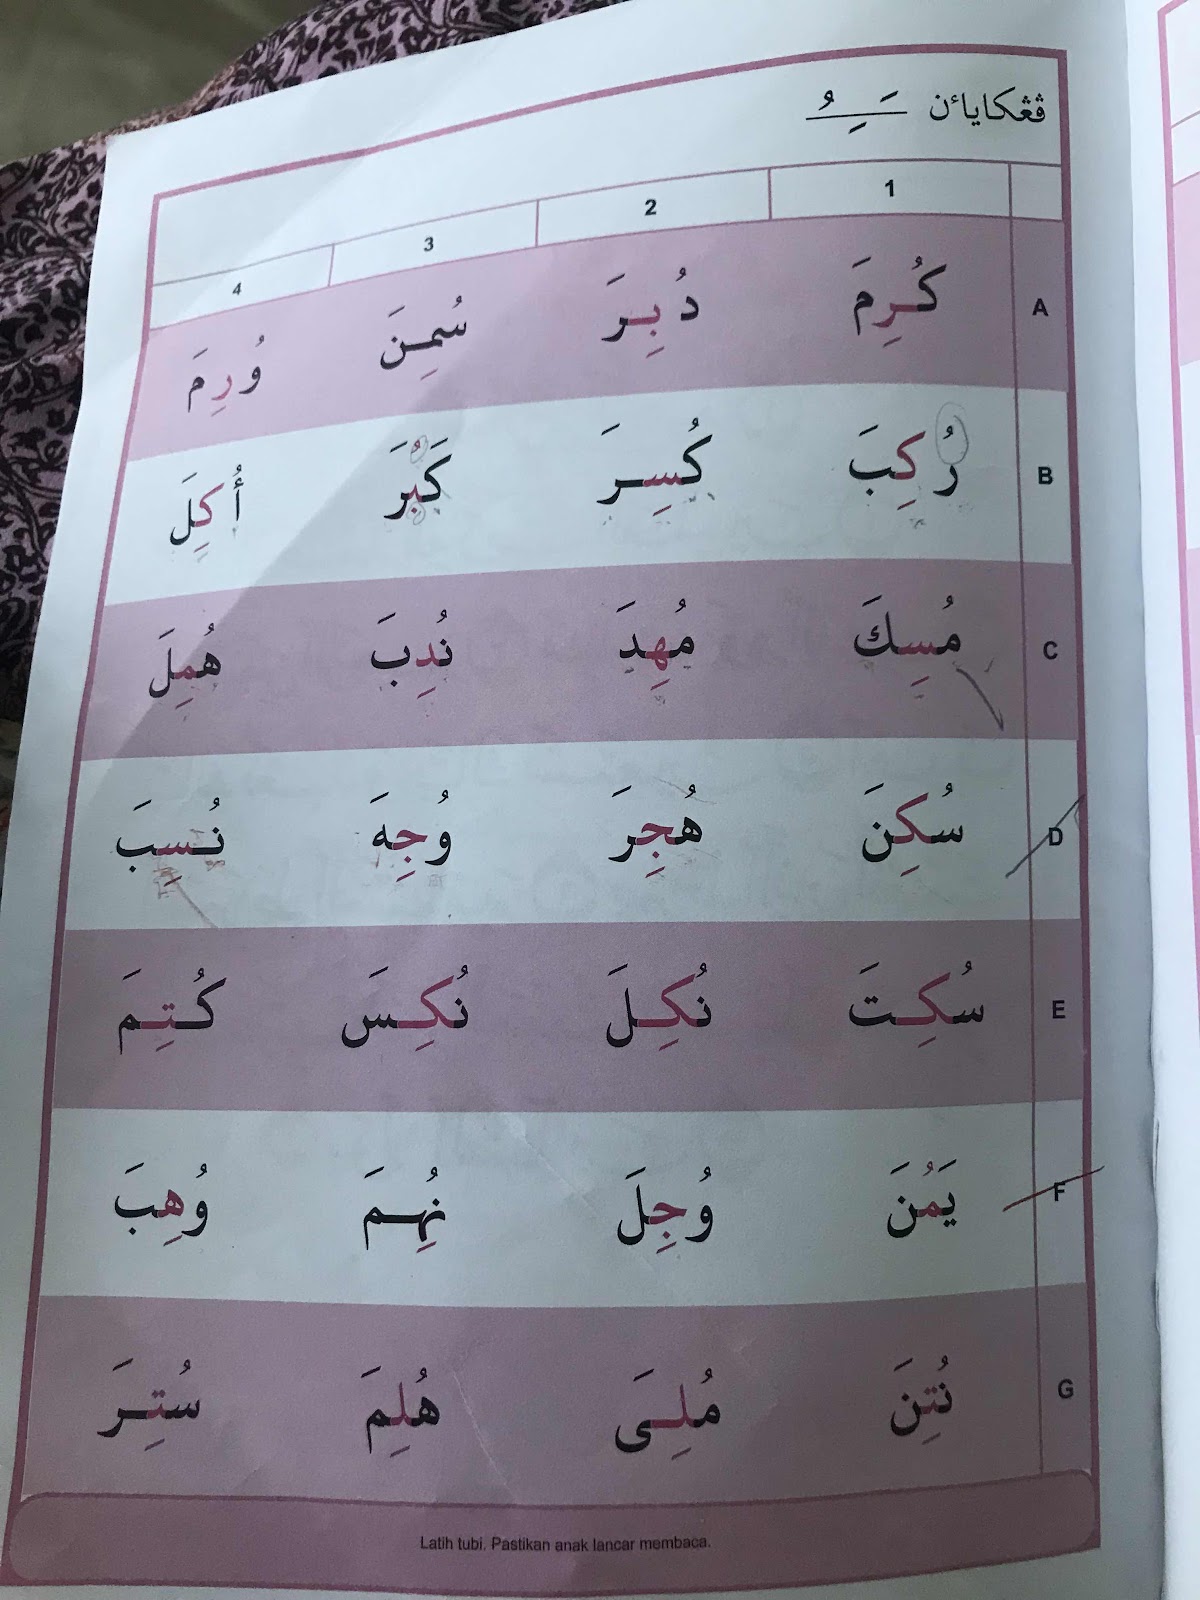 ڤڠكاياءن ــَـِـُـ
1 2 3 4
A كُرِمَ دُبِرَ سُمِنَ وُرِمَ
B رُكِبَ كُسِرَ كَبُرَ أُكِلَ
C مُسِكَ مُهِدَ نُدِبَ هُمِلَ
D سُكِنَ هُجِرَ وُجِهَ نُسِبَ
E سُكِتَ نُكِلَ نُكِسَ كُتِمَ
F يَمُنَ وُجِلَ نُهِمَ وُهِبَ
G نُتِنَ مُلِىَ هُلِمَ سُتِرَ
Latih tubi. Pastikan anak lancar membaca.